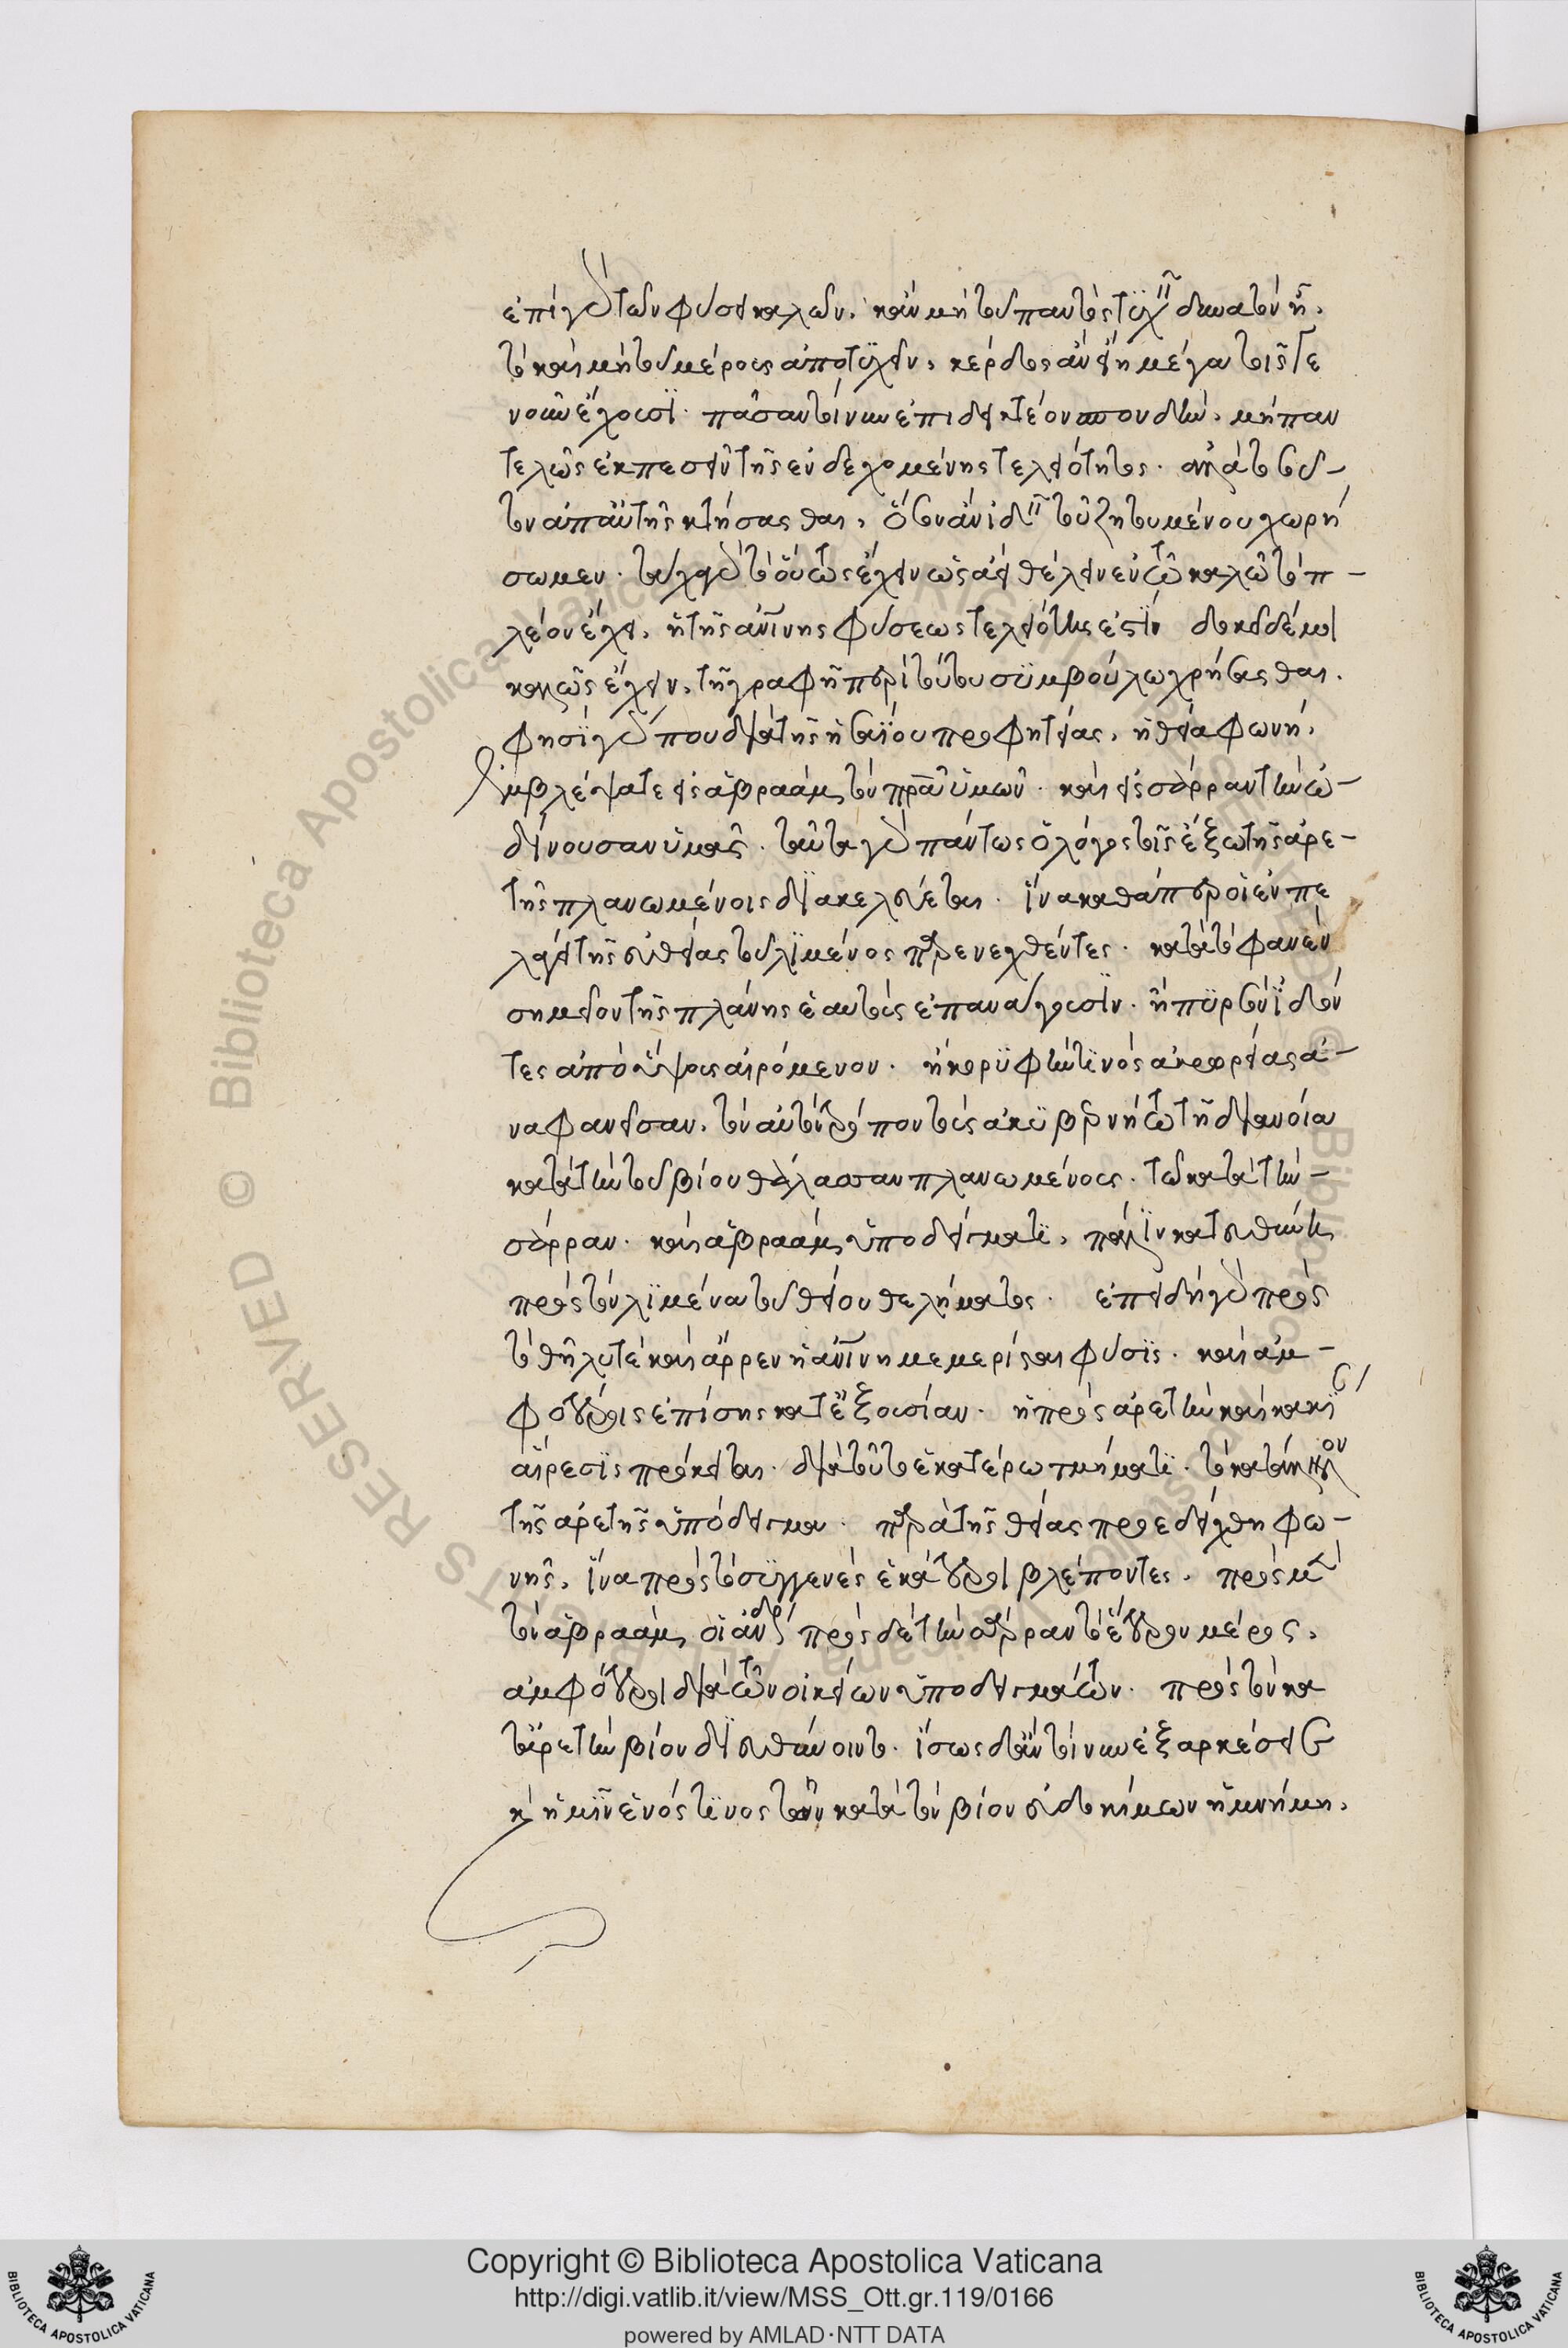 ἐπὶ γὰρ τῶν φύσει καλῶν. κἂν μὴ τοῦ παντὸς τυχεῖν δυνατὸν ᾖ.
τὸ καὶ μὴ τοῦ μέρους ἀποτυχεῖν, κέρδος ἂν εἴη μέγα τοῖς γε
νοῦν ἔχουσι. πᾶσαν τοίνυν ἐπιδεικτέον σπουδὴν, μὴ παν
τελῶς ἐκπεσεῖν τῆς ἐνδεχομένης τελειότητος. ἀλλὰ τοσοῦ-
τον ἀπ' αὐτῆς κτήσασθαι, ὅσον ἂν ἰδεῖν τοῦ ζητουμένου χωρή
σωμεν. τάχα γὰρ τὸ οὕτως ἔχειν ὡς ἀεὶ θέλειν ἐν τῷ καλῷ τὸ π-
λέον ἔχειν, ἡ τῆς ἀνίνης φύσεως τελειότης ἐστίν δοκεῖ δέ μοι
καλῶς ἔχειν, τῇ γραφῇ περὶ τούτου συμβούλῳ χρήσασθαι.
φησὶ γάρ που διὰ τῆς ἡσαΐου προφητείας, ἡ θεία φωνή,
Ἐμβλέψατε εἰς ἀβραὰμ τὸν πρα ὑμῶν. καὶ εἰς σάρραν τὴν ὠ-
δίνουσαν ὑμᾶς. ταῦτα γὰρ πάντως ὁ λόγος τοῖς ἔξω τῆς ἀρε-
τῆς πλανωμένοις διακελεύεται. ἵνα καθάπερ οἱ ἐν πε
λάγει τῆς εὐθείας τοῦ λιμένος παρενεχθέντες. κατὰ τὸ φανὲν
σημεῖον τῆς πλάνης ἑαυτοὺς ἐπανάγουσιν. ἢ πυρσὸν ἰδόν
τες ἀπὸ ὕψους αἰρόμενον. ἢ κορυφήν τινος ἀκρωρείας ἀ-
ναφανεῖσαν. τὸν αὐτὸν τρόπον τοὺς ἀκυβερνήτῳ τῇ διανοίᾳ
κατὰ τὴν τοῦ βίου θάλασσαν πλανωμένους. τῷ κατὰ τὴν-
σάρραν. καὶ ἀβραὰμ ὑποδείγματι, πάλιν κατευθύνῃ
πρὸς τὸν λιμένα τοῦ θείου θελήματος. ἐπειδὴ γὰρ πρὸς
τὸ θῆλύ τε καὶ ἄρρεν ἡ ἀνίνη μεμέρισται φύσις. καὶ ἀμ-
φοτέροις ἐπίσης κατ' ἐξουσίαν. ἡ πρὸς ἀρετὴν καὶ κακί
αἵρεσις πρόκειται. διὰ τοῦτο ἑκατέρῳ τμήματι. τὸ κατάλληλον
τῆς ἀρετῆς ὑπόδειγμα. παρὰ τῆς θείας προεδείχθη φω-
νῆς. ἵνα πρὸς τὸ συγγενὲς ἑκάτεροι βλέποντες. πρὸς μὲν
τὸν ἀβραὰμ οἱ ἄνδρες πρὸς δὲ τὴν σάρραν τὸ ἕτερον μέρος.
ἀμφότεροι διὰ τῶν οἰκείων ὑποδειγμάτων. πρὸς τὸν κα
τ' ἀρετὴν βίον διευθύνοιντο. ἴσως δ' ἂν τοίνυν ἐξαρκέσειε
κ ἡμῖν ἑνός τινος τῶν κατὰ τὸν βίον εὐδοκίμων ἡ μνήμη.
Copyright © Biblioteca Apostolica Vaticana
http://digi.vatlib.it/view/MSS_Ott.gr.119/0166
powered by AMLAD·NTT DATA